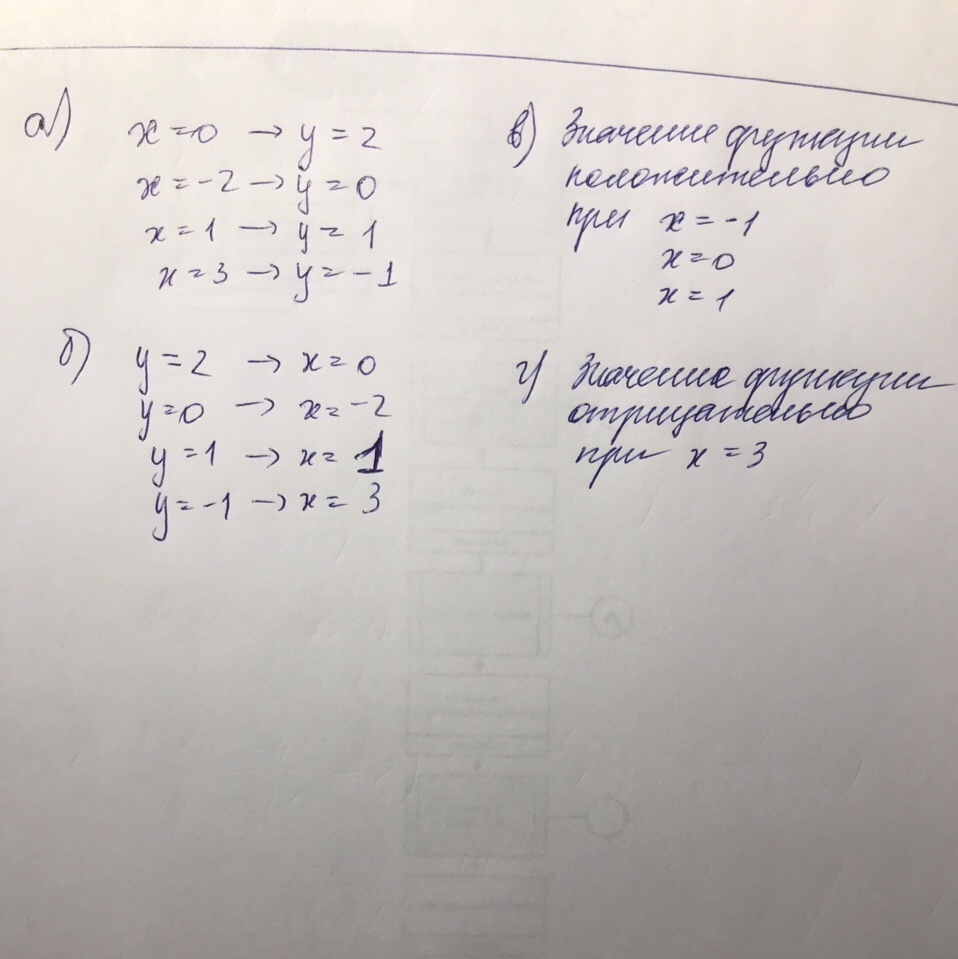 а)
x = 0 → y = 2
x = -2 → y = 0
x = 1 → y = 1
x = 3 → y = -1
б)
y = 2 → x = 0
y = 0 → x = -2
y = 1 → x = 1
y = -1 → x = 3
в) Значение функции
положительно
при x = -1
x = 0
x = 1
г) Значение функции
отрицательно
при x = 3